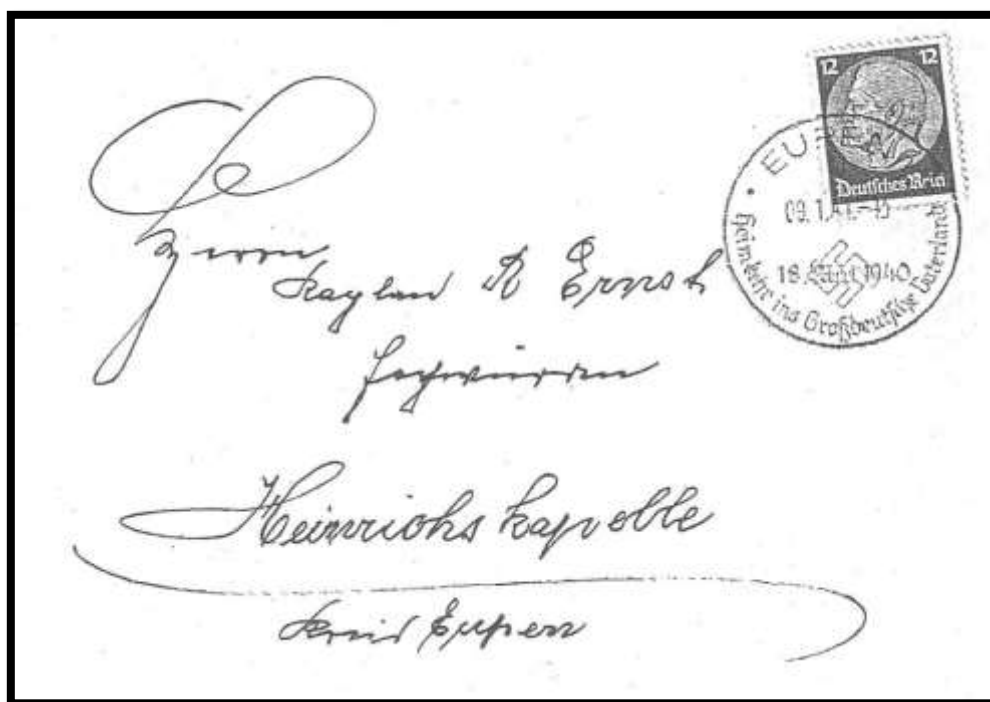 12 12
Deutsches Reich
EUPEN
18. Mai 1940
Heimkehr ins Großdeutsche Vaterland
Herrn
Kaplan R Ernst
Hochwürden
Heinrichskapelle
Kreis Eupen